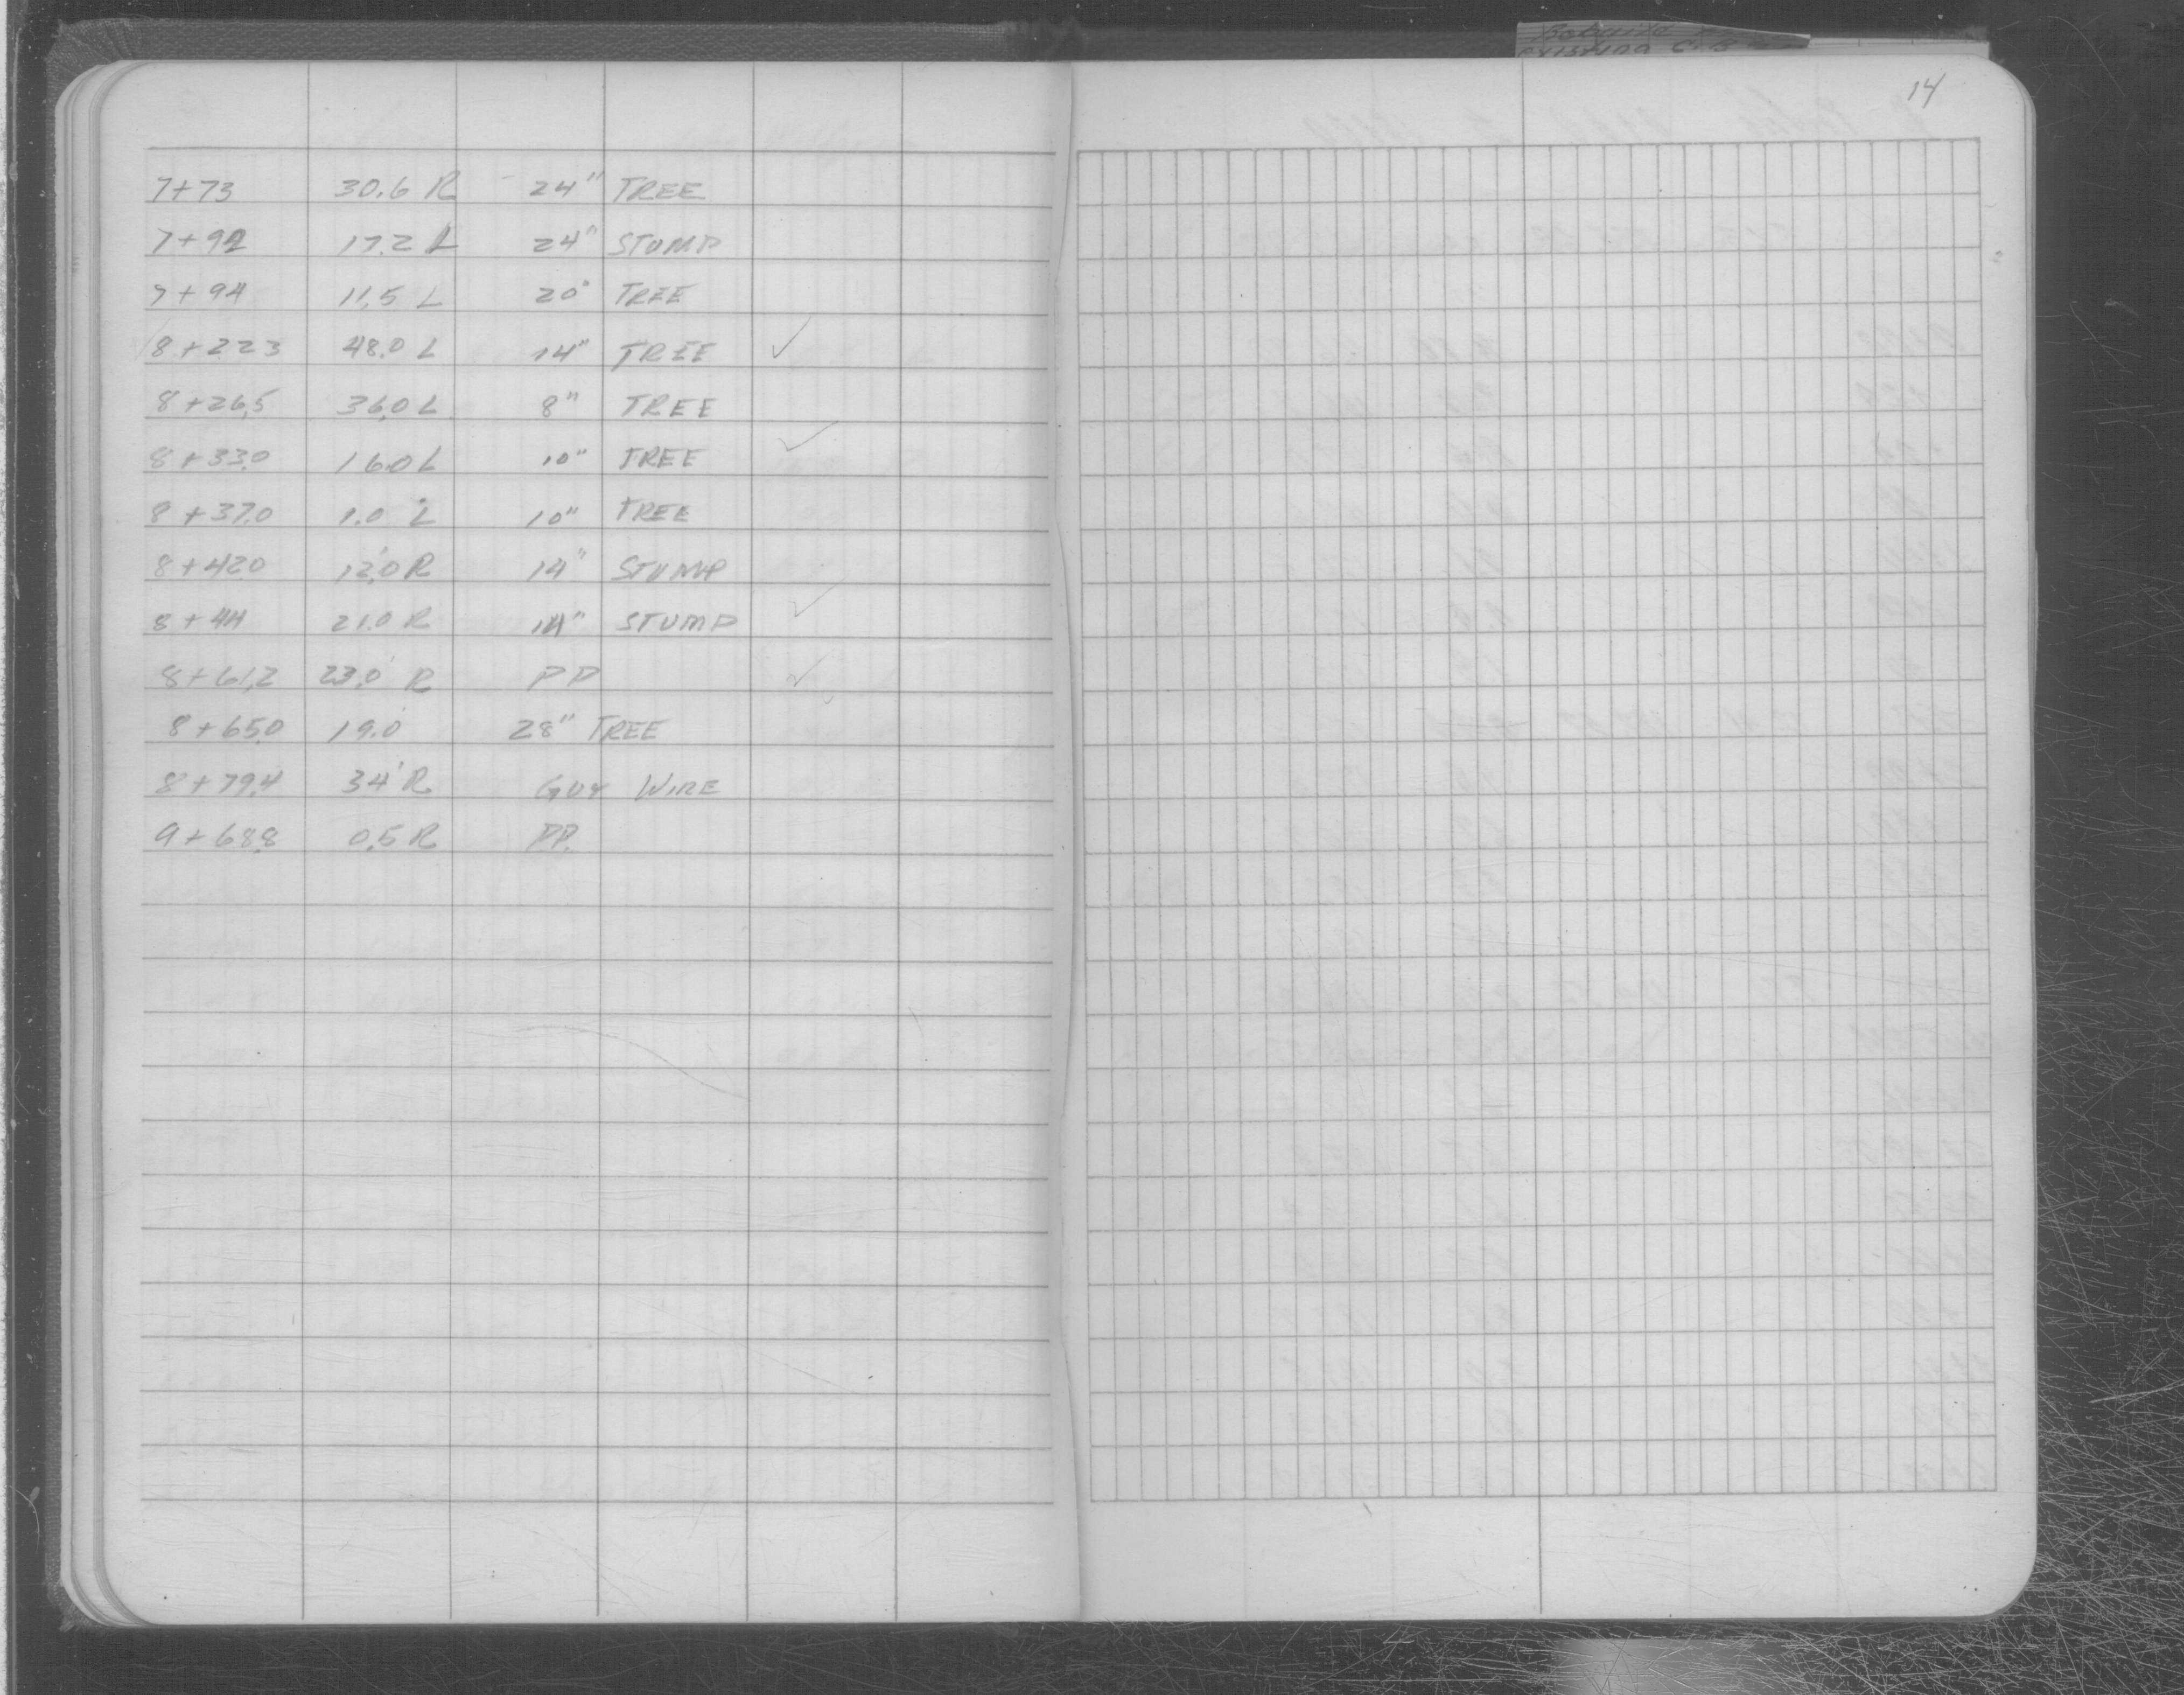 14
7+73 30.6 R 24" TREE
7+92 17.2 L 24" STUMP
7+94 11.5 L 20" TREE
8+22.3 48.0 L 14" TREE ✓
8+26.5 36.0 L 8" TREE
8+33.0 16.0 L 10" TREE ✓
8+37.0 1.0 L 10" TREE
8+42.0 12.0 R 14" STUMP
8+44 21.0 R 14" STUMP ✓
8+61.2 23.0' R PP ✓
8+65.0 19.0' 28" TREE
8+79.4 34' R GUY WIRE
9+68.8 0.5 R P.P.